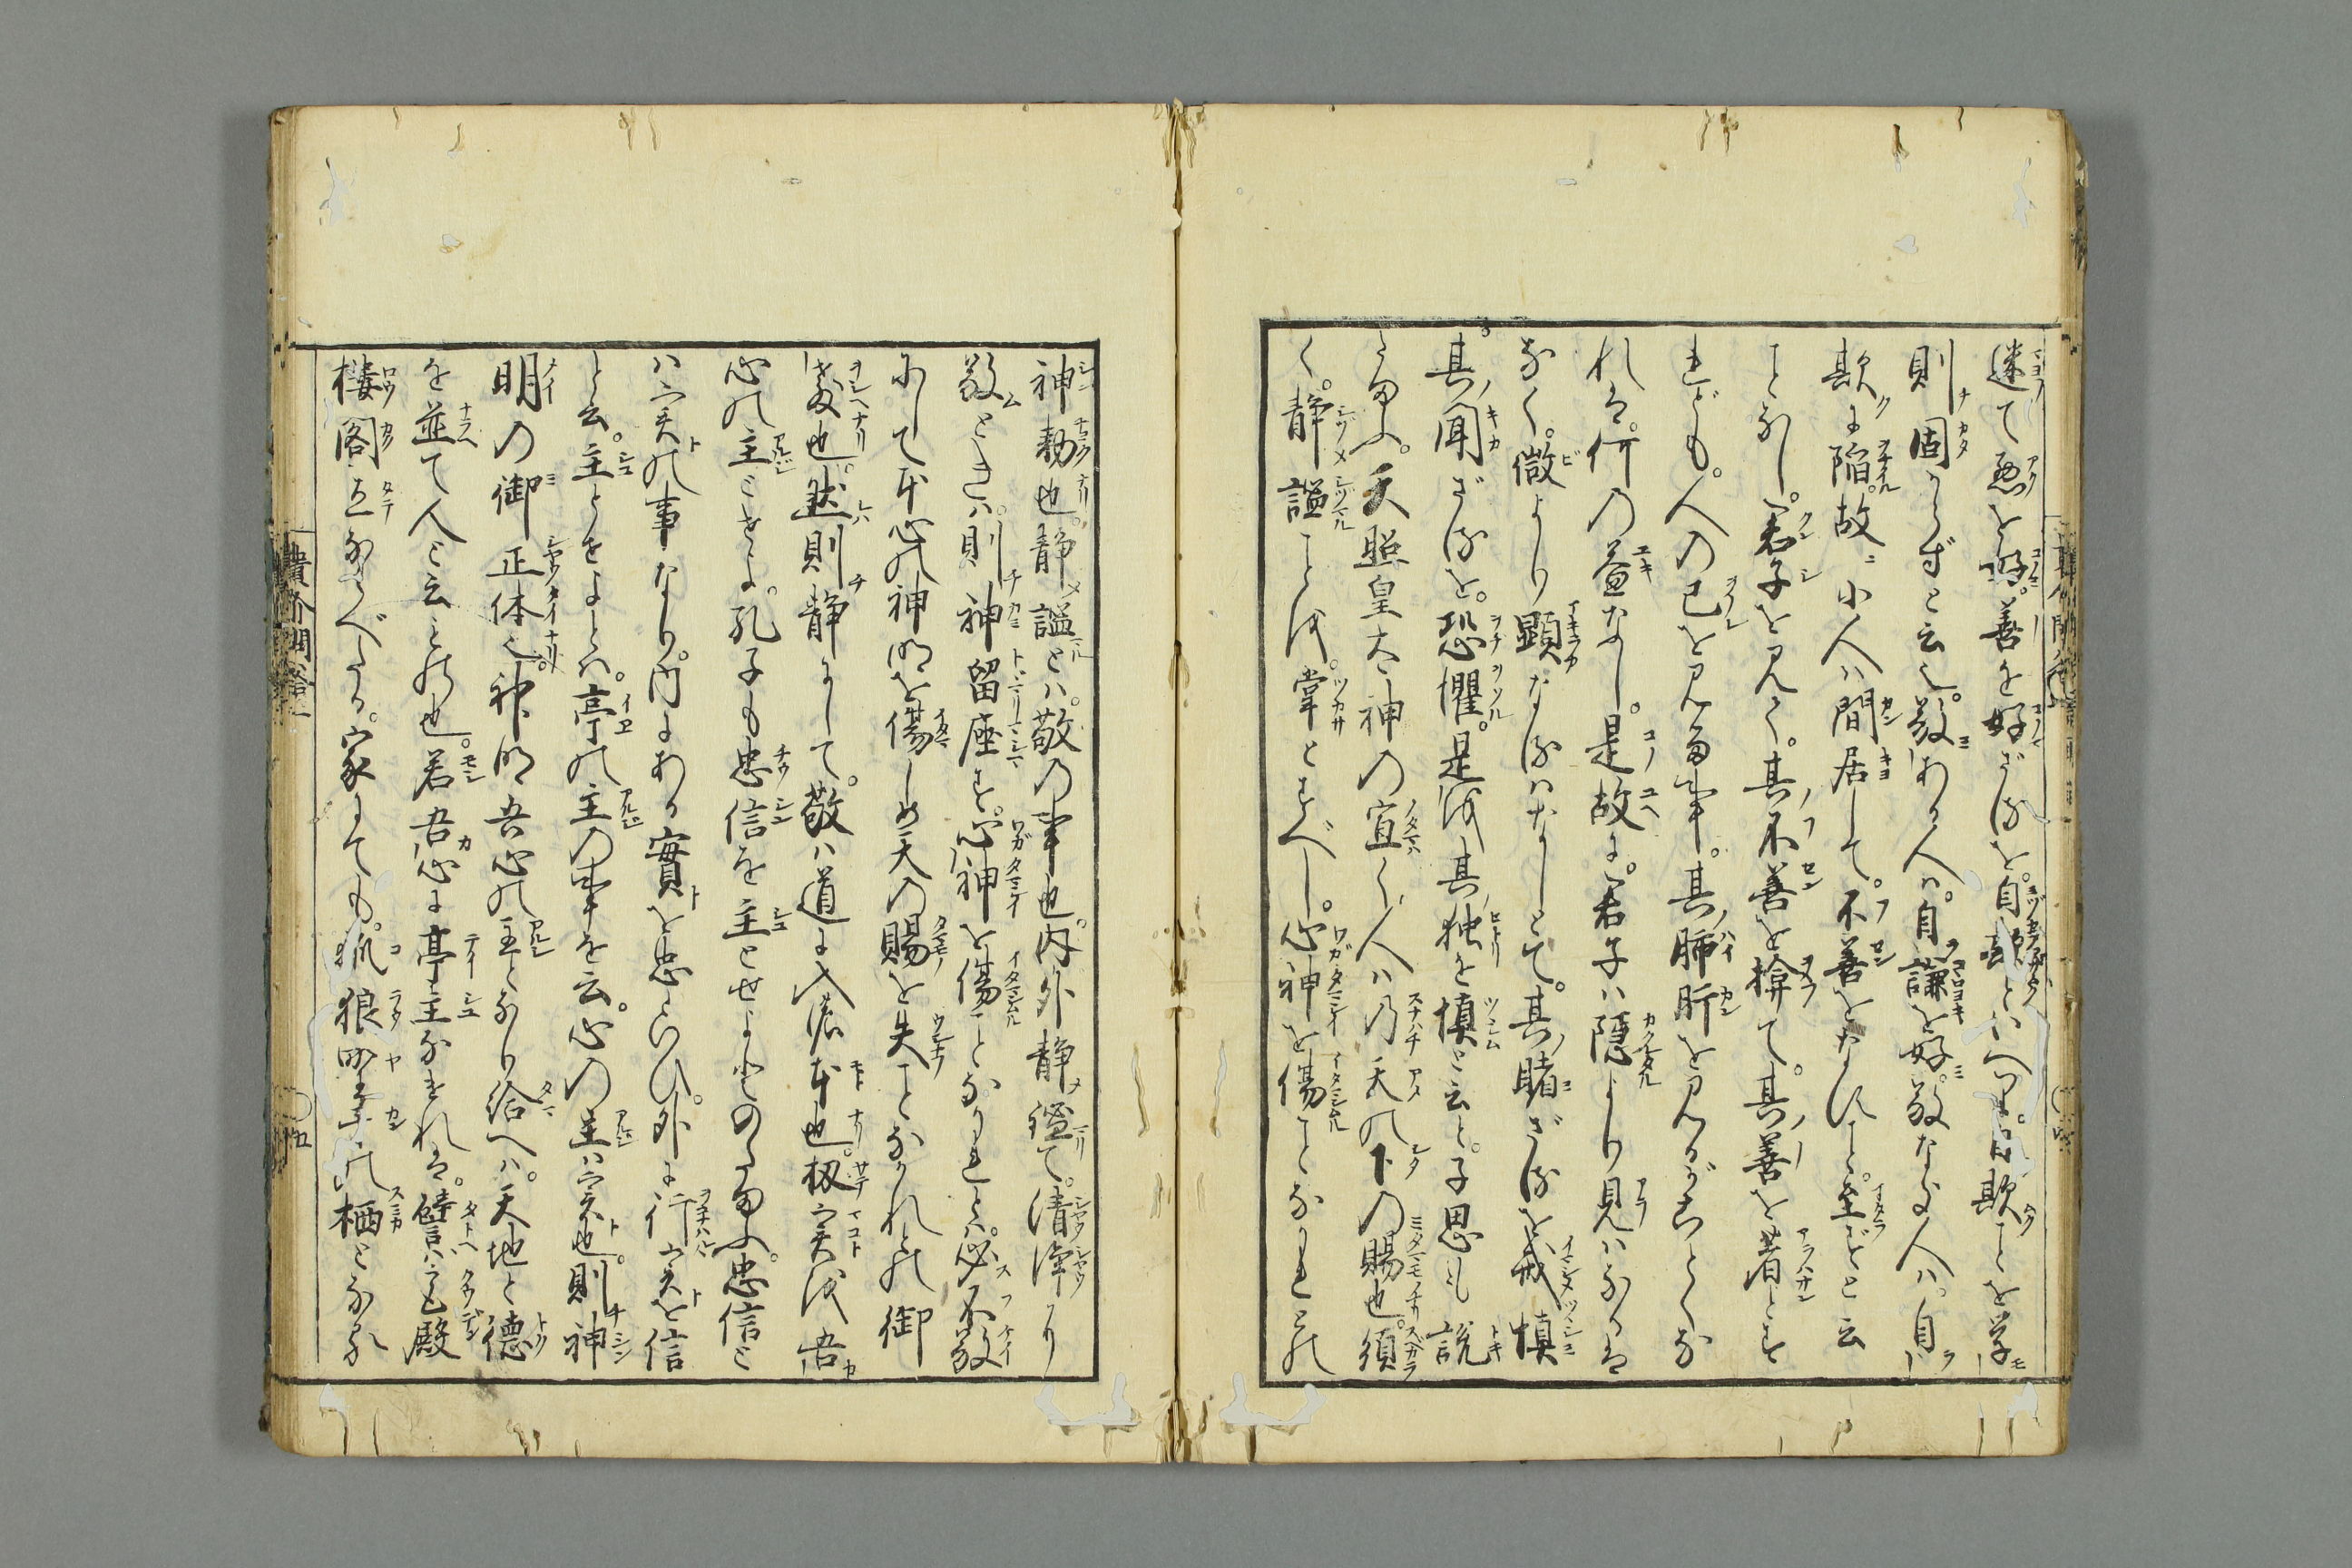 迷て悪を好。善を好ざるを。自欺とハいへり。自欺ことを学
則固からずと云也。敬ある人ハ。自謙を好。敬なき人ハ。自
欺に陥。故ニ小人ハ間居して。不善をなすこと。至ざと云
ことなし。君子を見て。其不善を揜て。其善を着とす
れども。人の己を見る事。其肺肝を見るがごとくな
れば。何の益なし。是故に。君子ハ隠より見ハなるは
なく。微より顕なるハなしとて。其睹ざるを戒慎
其聞ざるを。恐懼。是我其独を慎と云と。子思も説
たまふ。天照皇太神の宣く人ハ乃天の下の賜也。須
く。静謐ことを。掌とすべし。心神を傷ことなかれとの
神勅也。静謐とハ。敬の事也。内外静謐て。清浄り
敬ときハ。則神留座す。心神を傷ことなかれとハ。必不敬
にして本心の神明を傷しめ天の賜を失ことなかれとの御
教也。然則静にして。敬ハ道に入徳本也。扨実我吾
心の主ごとよ。孔子も忠信を主とせよとのたまふ。忠信と
ハ実の事なり。内にある實を忠といひ。外に行実を信
と云。主とせよとハ。亭の主の事を云。心の主ハ実也。則神
明の御正体也。神明吾心の主となり給へハ。天地と徳
を並て人と云もの也。若吾心に亭主なければ。譬ハ宮殿
楼閣立ならべたる。家にても。狐狼野干の栖となる
貴介問答一
〇五